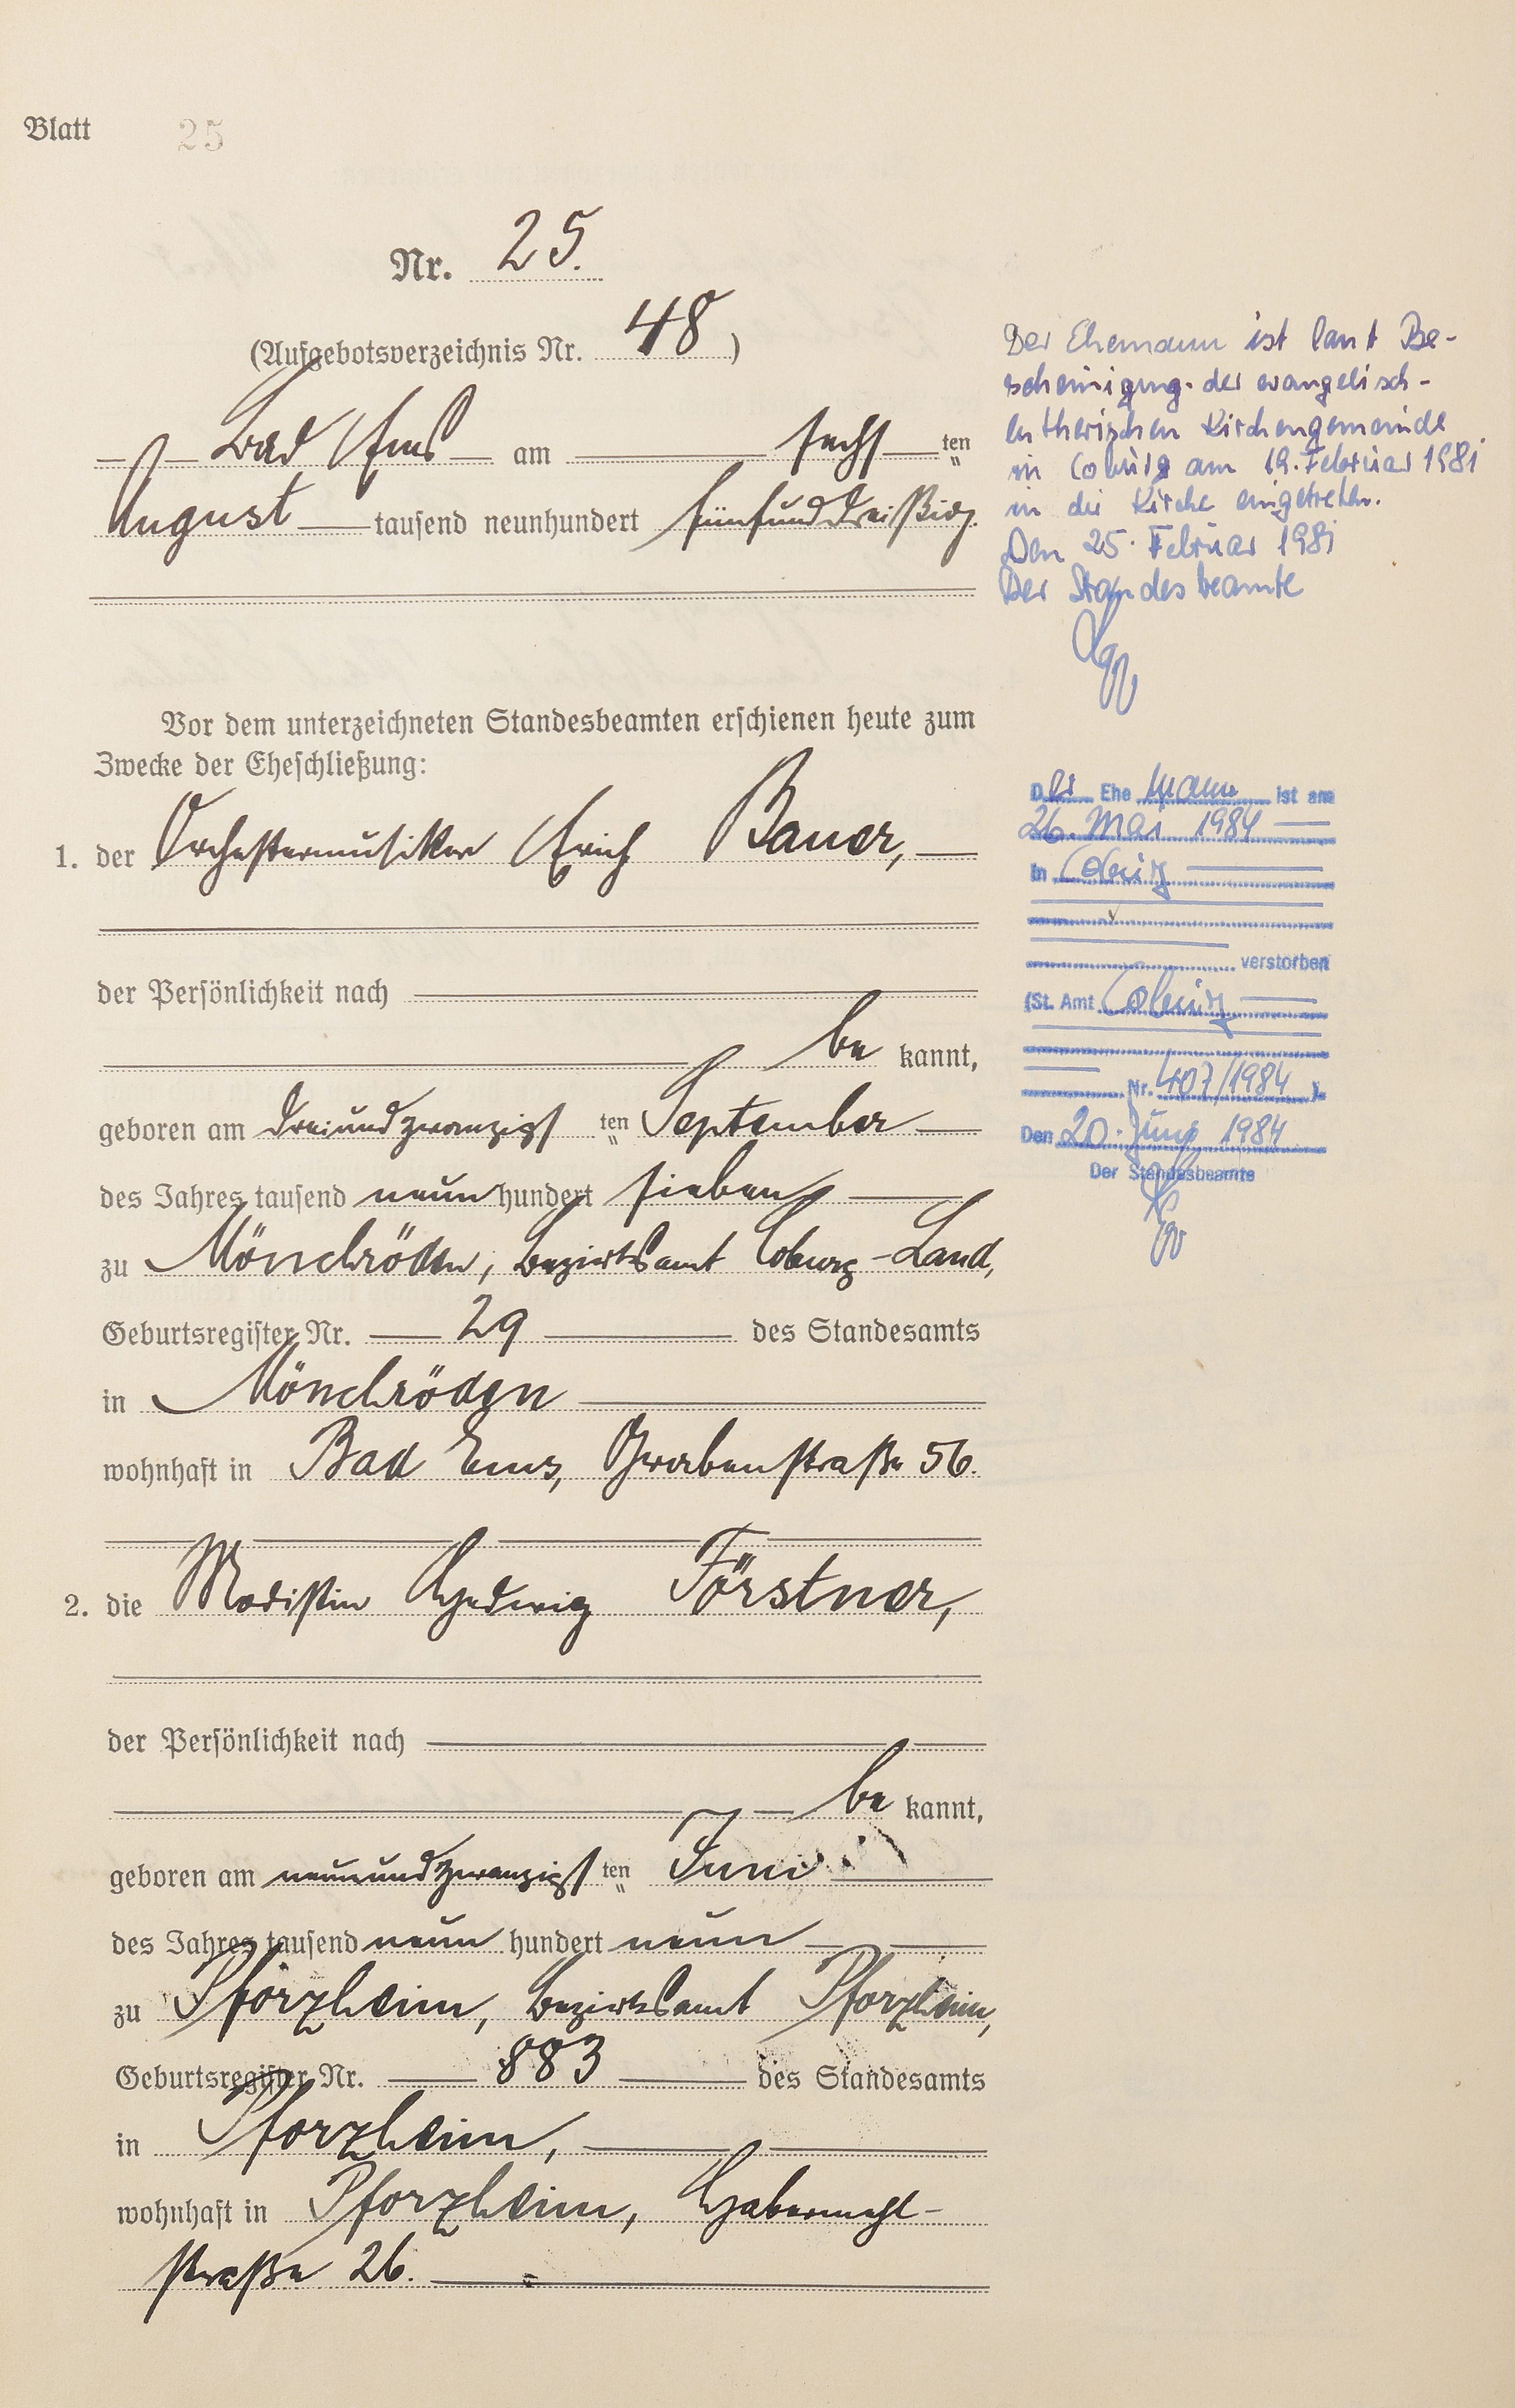 Blatt 25
Nr. 25.
(Aufgebotsverzeichnis Nr. 48)
Bad Ems am sechsten
August tausend neunhundert fünfunddreißig.
Vor dem unterzeichneten Standesbeamten erschienen heute zum
Zwecke der Eheschließung:
1. der Orchestermusiker Erich Bauer,
der Persönlichkeit nach
be kannt,
geboren am dreiundzwanzigsten September
des Jahres tausend neun hundert sieben
zu Mönchröden, Bezirksamt Coburg-Land,
Geburtsregister Nr. 29 des Standesamts
in Mönchröden
wohnhaft in Bad Ems, Grabenstraße 56.
2. die Modistin Hedwig Förstner,
der Persönlichkeit nach
be kannt,
geboren am neunundzwanzigsten Juni
des Jahres tausend neun hundert neun
zu Pforzheim, Bezirksamt Pforzheim,
Geburtsregister Nr. 883 des Standesamts
in Pforzheim,
wohnhaft in Pforzheim, Habermehl-
straße 26.
Der Ehemann ist laut Be-
scheinigung der evangelisch-
lutherischen Kirchengemeinde
in Coburg am 19. Februar 1981
in die Kirche eingetreten.
Den 25. Februar 1981
Der Standesbeamte
Der Ehe mann ist am
26. Mai 1984
in Coburg
verstorben
(St. Amt Coburg
Nr. 407/1984 ).
Den 20. Juni 1984
Der Standesbeamte